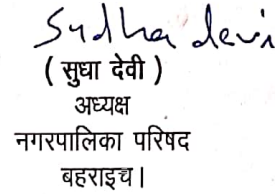 Sudha devi
( सुधा देवी )
अध्यक्ष
नगरपालिका परिषद
बहराइच।